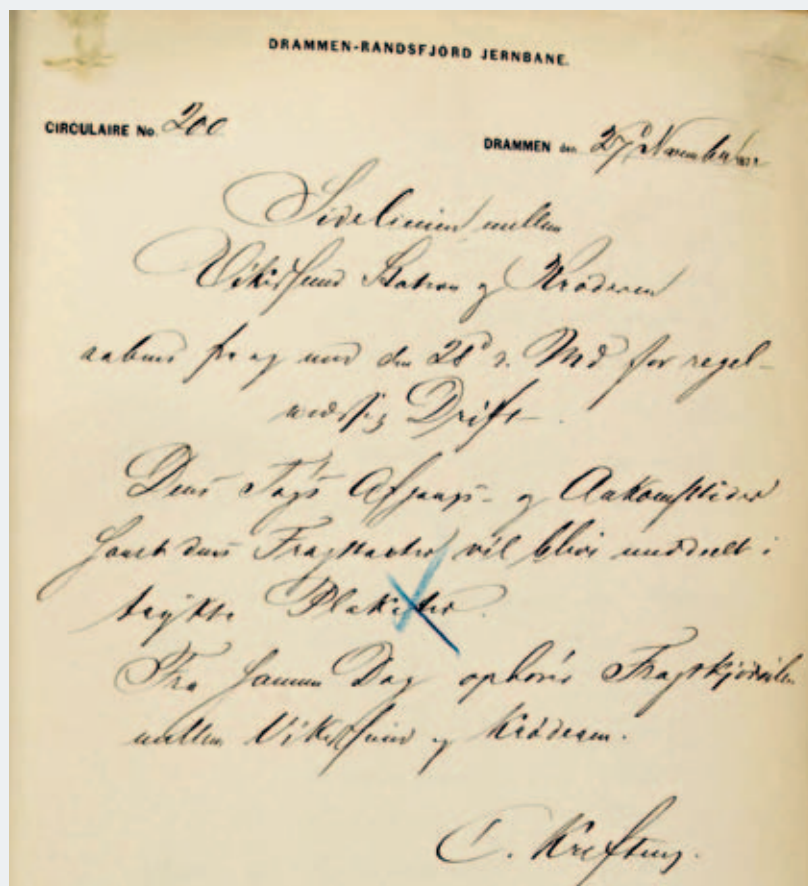 DRAMMEN-RANDSFJORD JERNBANE.
CIRCULAIRE No. 200
DRAMMEN den 27 November
Sidelinien mellem
Vikersund Station og Krøderen
aabnes fra og med den 28d d. Md for regel-
mæssig Drift.
Dens Togs Afgangs- og Ankomsttider
samt dens Fragttaxter vil blive meddelt i
trykte Plakater.
Fra samme Dag ophører Fragtkjørselen
mellem Vikersund og Krøderen.
C. Krefting.